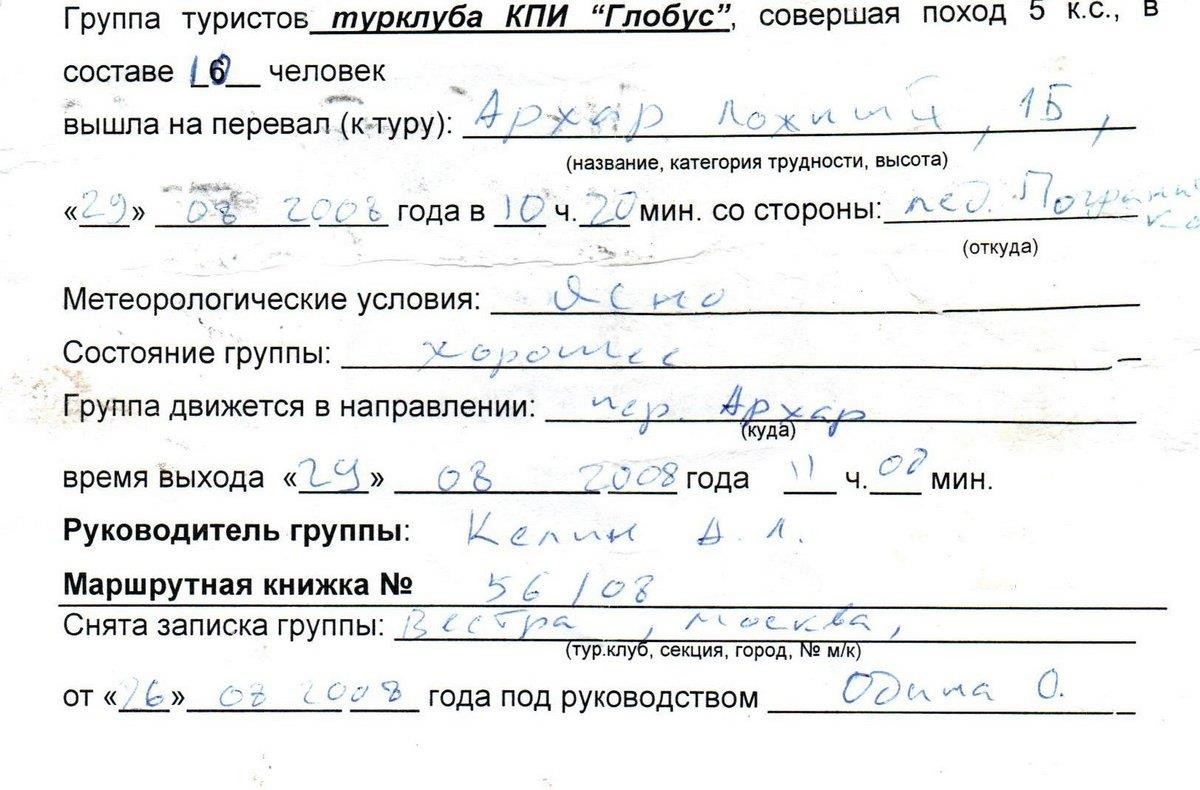 Группа туристов турклуба КПИ “Глобус”, совершая поход 5 к.с., в
составе 10 человек
вышла на перевал (к туру): Архар Ложный, 1Б,
(название, категория трудности, высота)
«29» 08 2008 года в 10 ч. 20 мин. со стороны: лед.
(откуда)
Метеорологические условия: Ясно
Состояние группы: хорошее
Группа движется в направлении: пер. Архар
(куда)
время выхода «29» 08 2008 года 11 ч. 00 мин.
Руководитель группы: Келин А. Л.
Маршрутная книжка № 56/08
Снята записка группы: Вестра, Москва,
(тур.клуб, секция, город, № м/к)
от «26» 08 2008 года под руководством О.